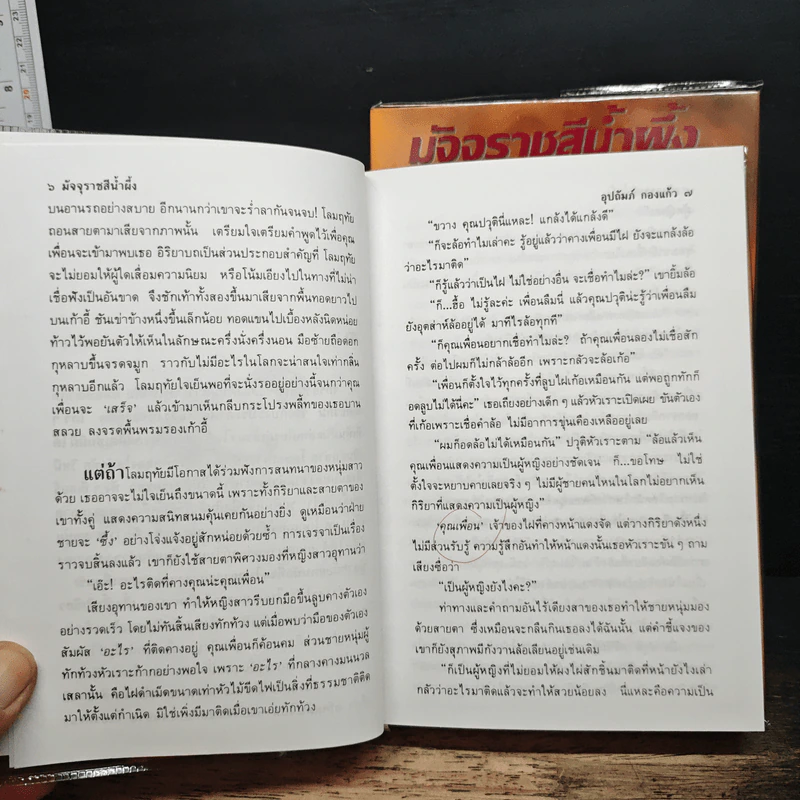 มัจจุราชสีน้ำผึ้ง
๖ มัจจุราชสีน้ำผึ้ง
บนอานรถอย่างสบาย อีกนานกว่าเขาจะร่ำลากันจนจบ! โลมฤทัย
ถอนสายตามาเสียจากภาพนั้น เตรียมใจเตรียมคำพูดไว้เพื่อคุณ
เพื่อนจะเข้ามาพบเธอ อิริยาบถเป็นส่วนประกอบสำคัญที่ โลมฤทัย
จะไม่ยอมให้ผู้ใดเสื่อมความนิยม หรือโน้มเอียงไปในทางที่ไม่น่า
เชื่อฟังเป็นอันขาด จึงชักเท้าทั้งสองขึ้นมาเสียจากพื้นทอดยาวไป
บนเก้าอี้ ชันเข่าข้างหนึ่งขึ้นเล็กน้อย ทอดแขนไปเบื้องหลังนิดหน่อย
ท้าวไว้พอยันตัวให้เห็นในลักษณะครึ่งนั่งครึ่งนอน มือซ้ายถือดอก
กุหลาบขึ้นจรดจมูก ราวกับไม่มีอะไรในโลกจะน่าสนใจเท่ากลิ่น
กุหลาบอีกแล้ว โลมฤทัยใจเย็นพอที่จะนั่งรออยู่อย่างนี้จนกว่าคุณ
เพื่อนจะ ‘เสร็จ’ แล้วเข้ามาเห็นกลีบกระโปรงพลี้ทของเธอบาน
สลวย ลงจรดพื้นพรมรองเก้าอี้
แต่ถ้าโลมฤทัยมีโอกาสได้ร่วมฟังการสนทนาของหนุ่มสาว
ด้วย เธออาจจะไม่ใจเย็นถึงขนาดนี้ เพราะทั้งกิริยาและสายตาของ
เขาทั้งคู่ แสดงความสนิทสนมคุ้นเคยกันอย่างยิ่ง ดูเหมือนว่าฝ่าย
ชายจะ ‘ซึ้ง’ อย่างโจ่งแจ้งอยู่สักหน่อยด้วยซ้ำ การเจรจาเป็นเรื่อง
ราวจบสิ้นลงแล้ว เขาก็ยังใช้สายตาพิศวงมองที่หญิงสาวอุทานว่า
“เอ๊ะ! อะไรติดที่คางคุณน่ะคุณเพื่อน”
เสียงอุทานของเขา ทำให้หญิงสาวรีบยกมือขึ้นลูบคางตัวเอง
อย่างรวดเร็ว โดยไม่ทันสิ้นเสียงทักท้วง แต่เมื่อพบว่ามือของตัวเอง
สัมผัส ‘อะไร’ ที่ติดคางอยู่ คุณเพื่อนก็ค้อนคม ส่วนชายหนุ่มผู้
ทักท้วงหัวเราะก้ากอย่างพอใจ เพราะ ‘อะไร’ ที่กลางคางมนนวล
เสลานั้น คือไฝดำเม็ดขนาดเท่าหัวไม้ขีดไฟเป็นสิ่งที่ธรรมชาติติด
มาให้ตั้งแต่กำเนิด มิใช่เพิ่งมีมาติดเมื่อเขาเอ่ยทักท้วง
อุปถัมภ์ กองแก้ว ๗
“ขวาง คุณปวุตินี่แหละ! แกล้งได้แกล้งดี”
“ก็จะล้อทำไมเล่าคะ รู้อยู่แล้วว่าคางเพื่อนมีไฝ ยังจะแกล้งล้อ
ว่าอะไรมาติด”
“ก็รู้แล้วว่าเป็นไฝ ไม่ใช่อย่างอื่น จะเชื่อทำไมล่ะ?” เขายิ้มล้อ
“ก็...ฮื้อ ไม่รู้ละค่ะ เพื่อนลืมนี่ แล้วคุณปวุติน่ะรู้ว่าเพื่อนลืม
ยังอุตส่าห์ล้ออยู่ได้ มาทีไรล้อทุกที”
“ก็คุณเพื่อนอยากเชื่อทำไมล่ะ? ถ้าคุณเพื่อนลองไม่เชื่อสัก
ครั้ง ต่อไปผมก็ไม่กล้าล้ออีก เพราะกลัวจะล้อเก้อ”
“เพื่อนก็ตั้งใจไว้ทุกครั้งที่ลูบไฝเก้อเหมือนกัน แต่พอถูกทักก็
อดลูบไม่ได้นี่คะ” เธอเถียงอย่างเด็ก ๆ แล้วหัวเราะเปิดเผย ขันตัวเอง
ที่เก้อเพราะเชื่อคำล้อ ไม่มีอาการขุ่นเคืองเหลืออยู่เลย
“ผมก็อดล้อไม่ได้เหมือนกัน” ปวุติหัวเราะตาม “ล้อแล้วเห็น
คุณเพื่อนแสดงความเป็นผู้หญิงอย่างชัดเจน ก็...ขอโทษ ไม่ใช่
ตั้งใจจะหยาบคายเลยจริง ๆ ไม่มีผู้ชายคนไหนในโลกไม่อยากเห็น
กิริยาที่แสดงความเป็นผู้หญิง”
‘คุณเพื่อน’ เจ้าของไฝที่คางหน้าแดงจัด แต่วางกิริยาดังหนึ่ง
ไม่มีส่วนรับรู้ ความรู้สึกอันทำให้หน้าแดงนั้นเธอหัวเราะขัน ๆ ถาม
เสียงซื่อว่า
“เป็นผู้หญิงยังไงคะ?”
ท่าทางและคำถามอันไร้เดียงสาของเธอทำให้ชายหนุ่มมอง
ด้วยสายตา ซึ่งเหมือนจะกลืนกินเธอลงได้ฉันนั้น แต่คำชี้แจงของ
เขาก็ยังสุภาพมีกังวานล้อเลียนอยู่เช่นเดิม
“ก็เป็นผู้หญิงที่ไม่ยอมให้ผงไฝสักชิ้นมาติดที่หน้ายังไงเล่า
กลัวว่าอะไรมาติดแล้วจะทำให้สวยน้อยลง นี่แหละคือความเป็น